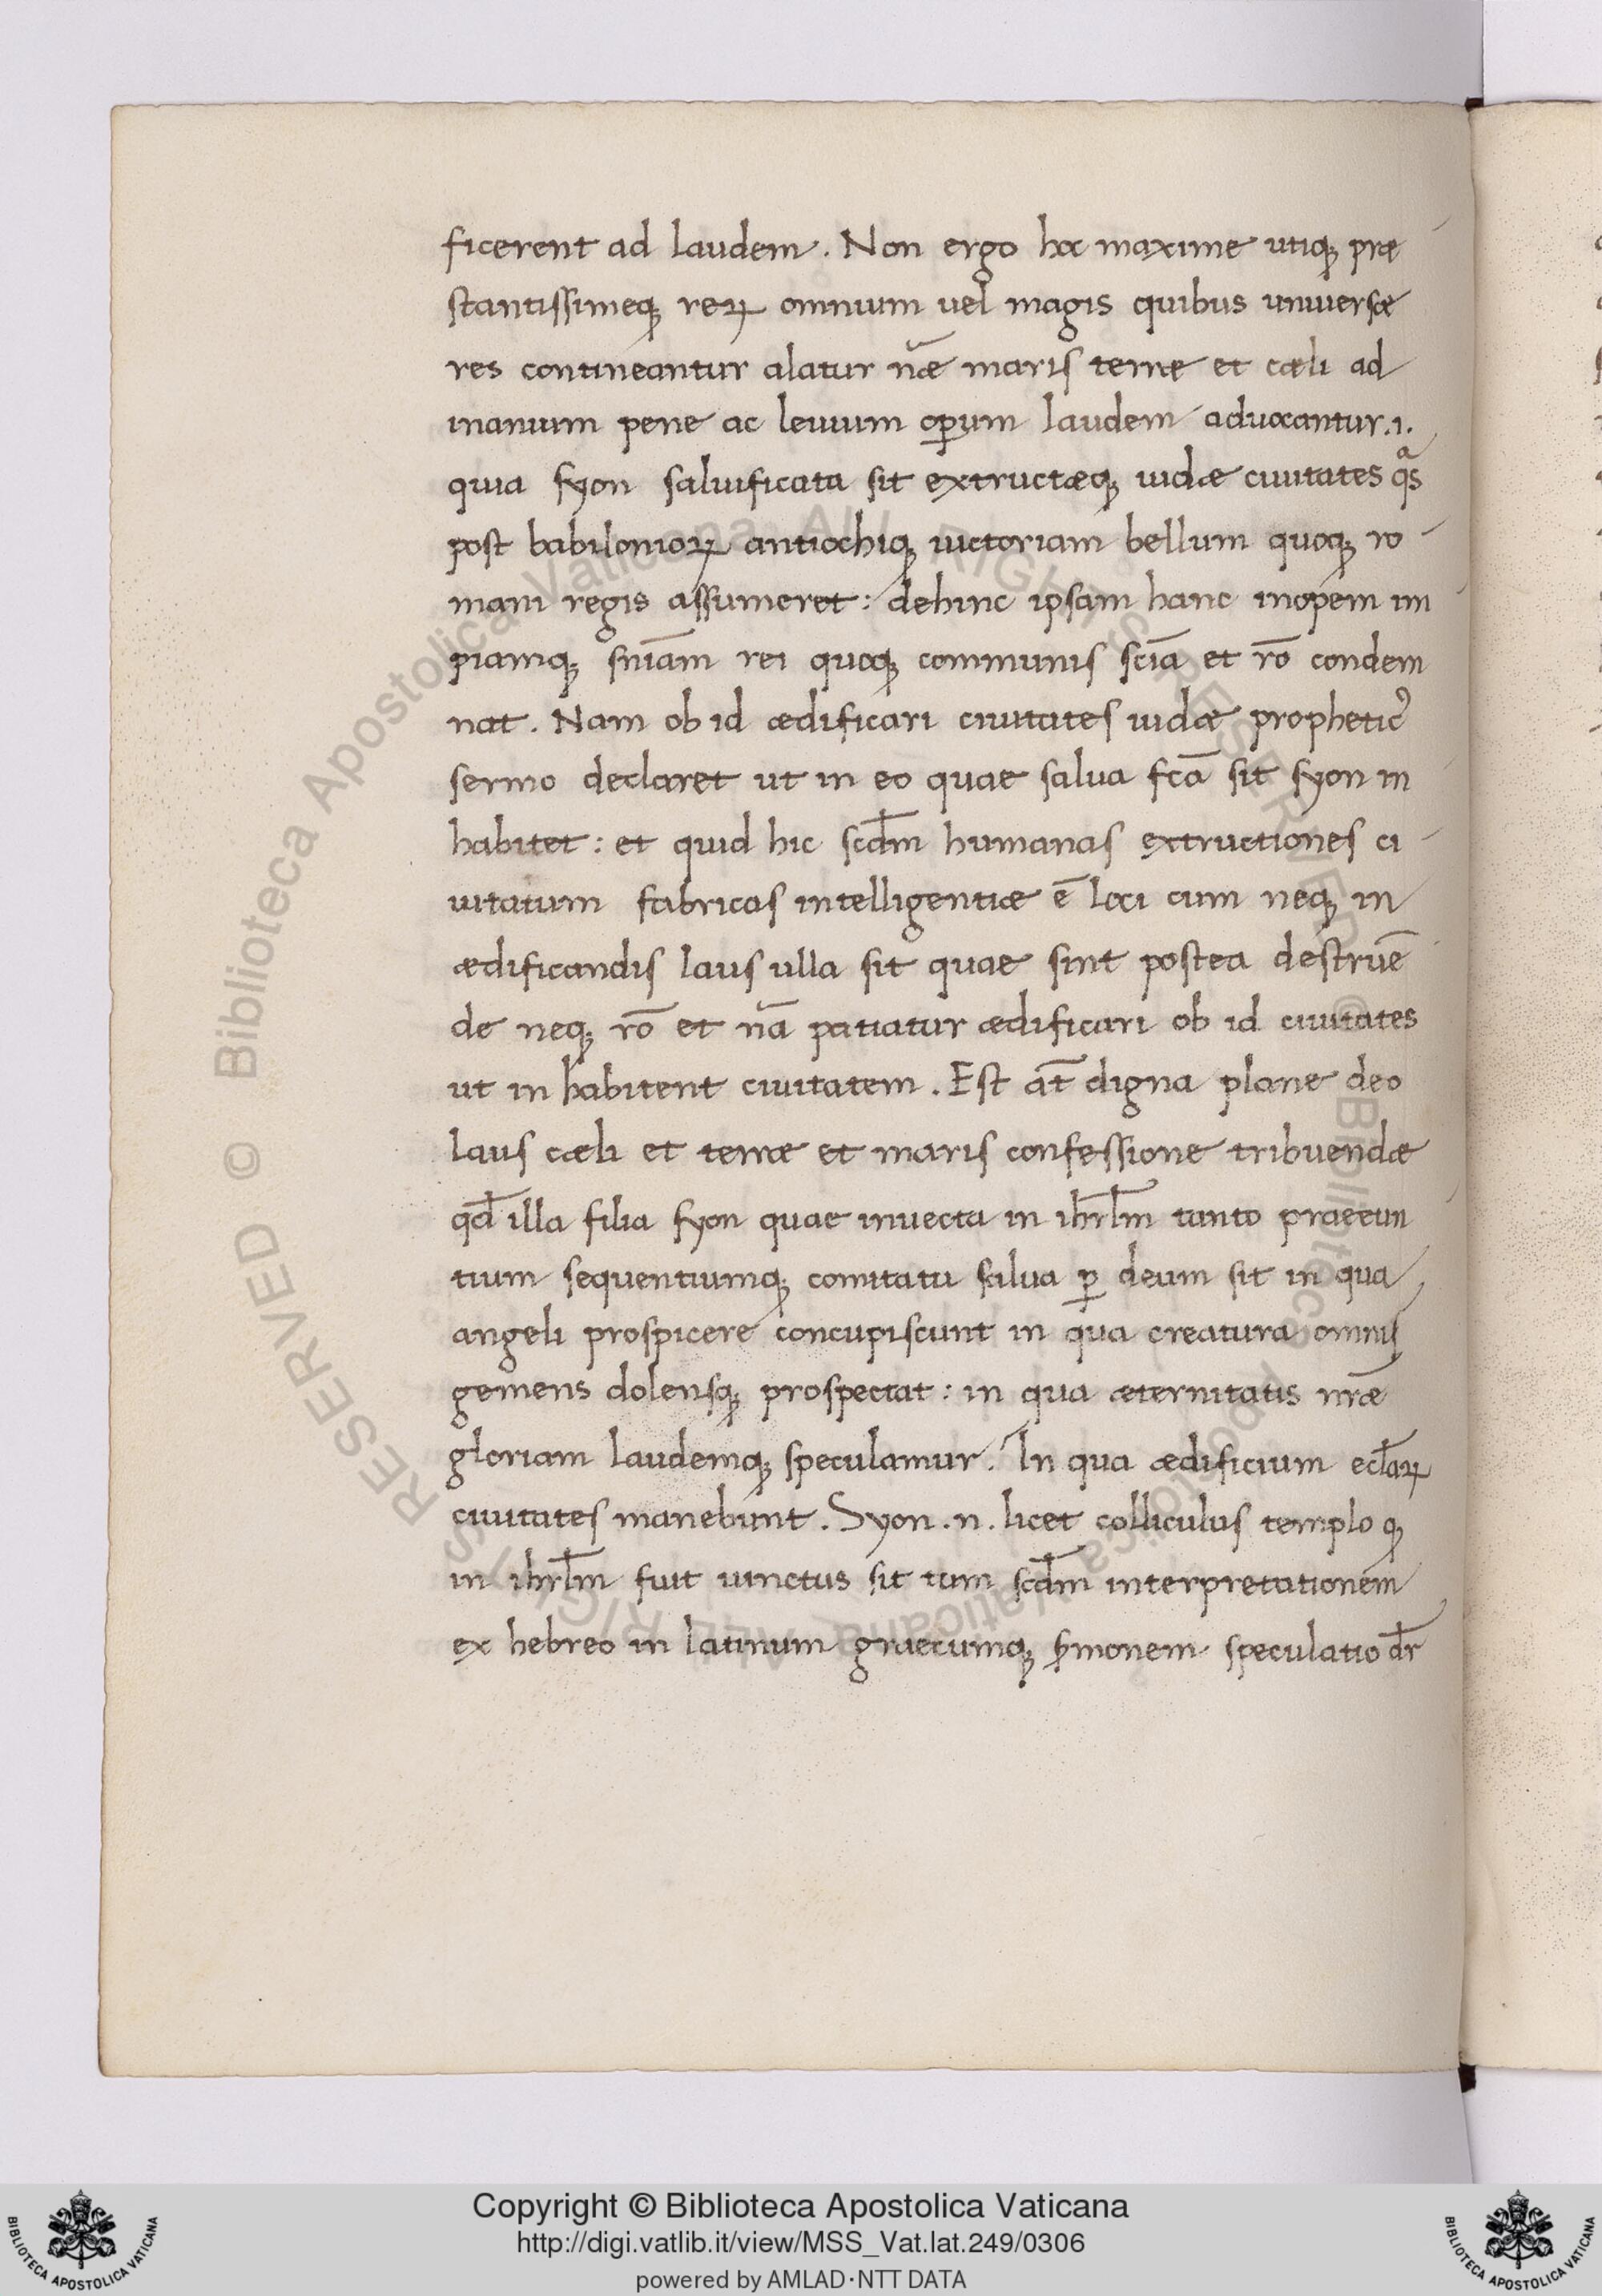 ficerent ad laudem. Non ergo hoc maxime utiqꝫ præ
stantissimeqꝫ reꝝ omnium uel magis quibus uniuersæ
res contineantur alatur nꝛ̄æ maris terræ et cæli ad
inanium pene ac leuium oꝑum laudem aduocantur .i.
quia syon saluificata sit extructæqꝫ iudæ ciuitates qᵃs
post babilonioꝝ antiochiqꝫ uictoriam bellum quoqꝫ ro
mani regis assumeret: dehinc ipsam hanc inopem im
piamqꝫ sn̄iam rei quoqꝫ communis scīa et rō condem
nat. Nam ob id ædificari ciuitates iudæ propheticꝰ
sermo declaret ut in eo quae salua fcā sit syon in
habitet: et quid hic scd̄m humanas extructiones ci
uitatum fabricas intelligentiæ ē loci cum neqꝫ in
ædificandis laus ulla sit quae sint postea destruē
de neqꝫ rō et nā patiatur ædificari ob id ciuitates
ut in habitent ciuitatem. Est at̄ digna plane deo
laus cæli et terræ et maris confessione tribuendæ
qd̄ illa filia syon quae inuecta in ihrl̄m tanto praeeun
tium sequentiumqꝫ comitatu salua ꝑ deum sit in qua
angeli prospicere concupiscunt in qua creatura omnis
gemens dolensqꝫ prospectat: in qua æternitatis nr̄æ
gloriam laudemqꝫ speculamur. In qua ædificium ecl̄aꝝ
ciuitates manebunt. Syon .n. licet colliculus templo qꝫ
in ihrl̄m fuit iunctus sit tum scd̄m interpretationem
ex hebreo in latinum graecumqꝫ s̄monem speculatio dr̄
Copyright © Biblioteca Apostolica Vaticana
http://digi.vatlib.it/view/MSS_Vat.lat.249/0306
powered by AMLAD·NTT DATA